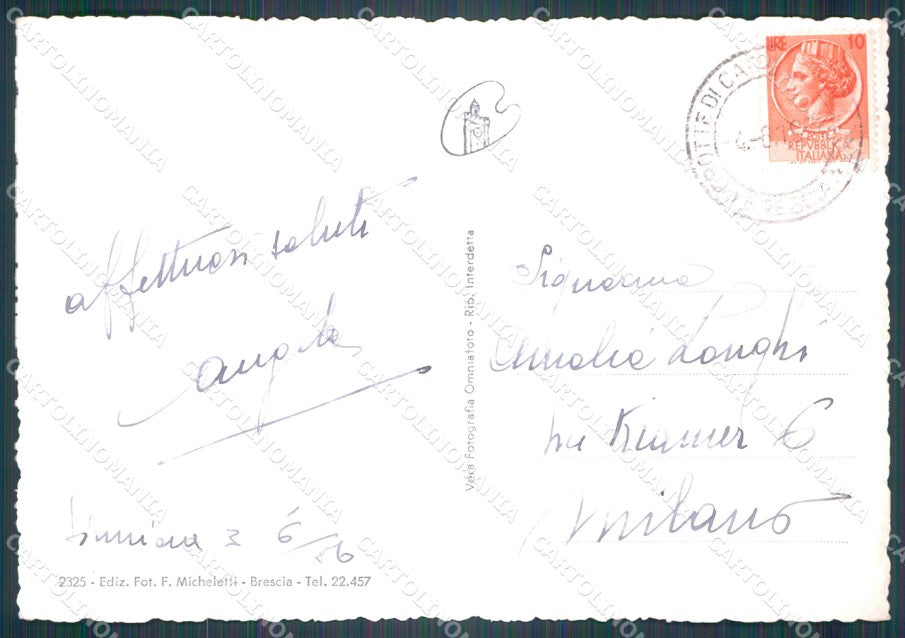 affettuosi saluti
Angela
Sirmione 3 6/56
2325 - Ediz. Fot. F. Micheletti - Brescia - Tel. 22.457
Vera Fotografia Omniafoto - Rip. Interdetta
LIRE 10
REPVBBLICA
ITALIANA
GROTTE DI CATULLO
Signorina
Amalia Longhi
via Kramer 6
Milano
CARTOLINOMANIA